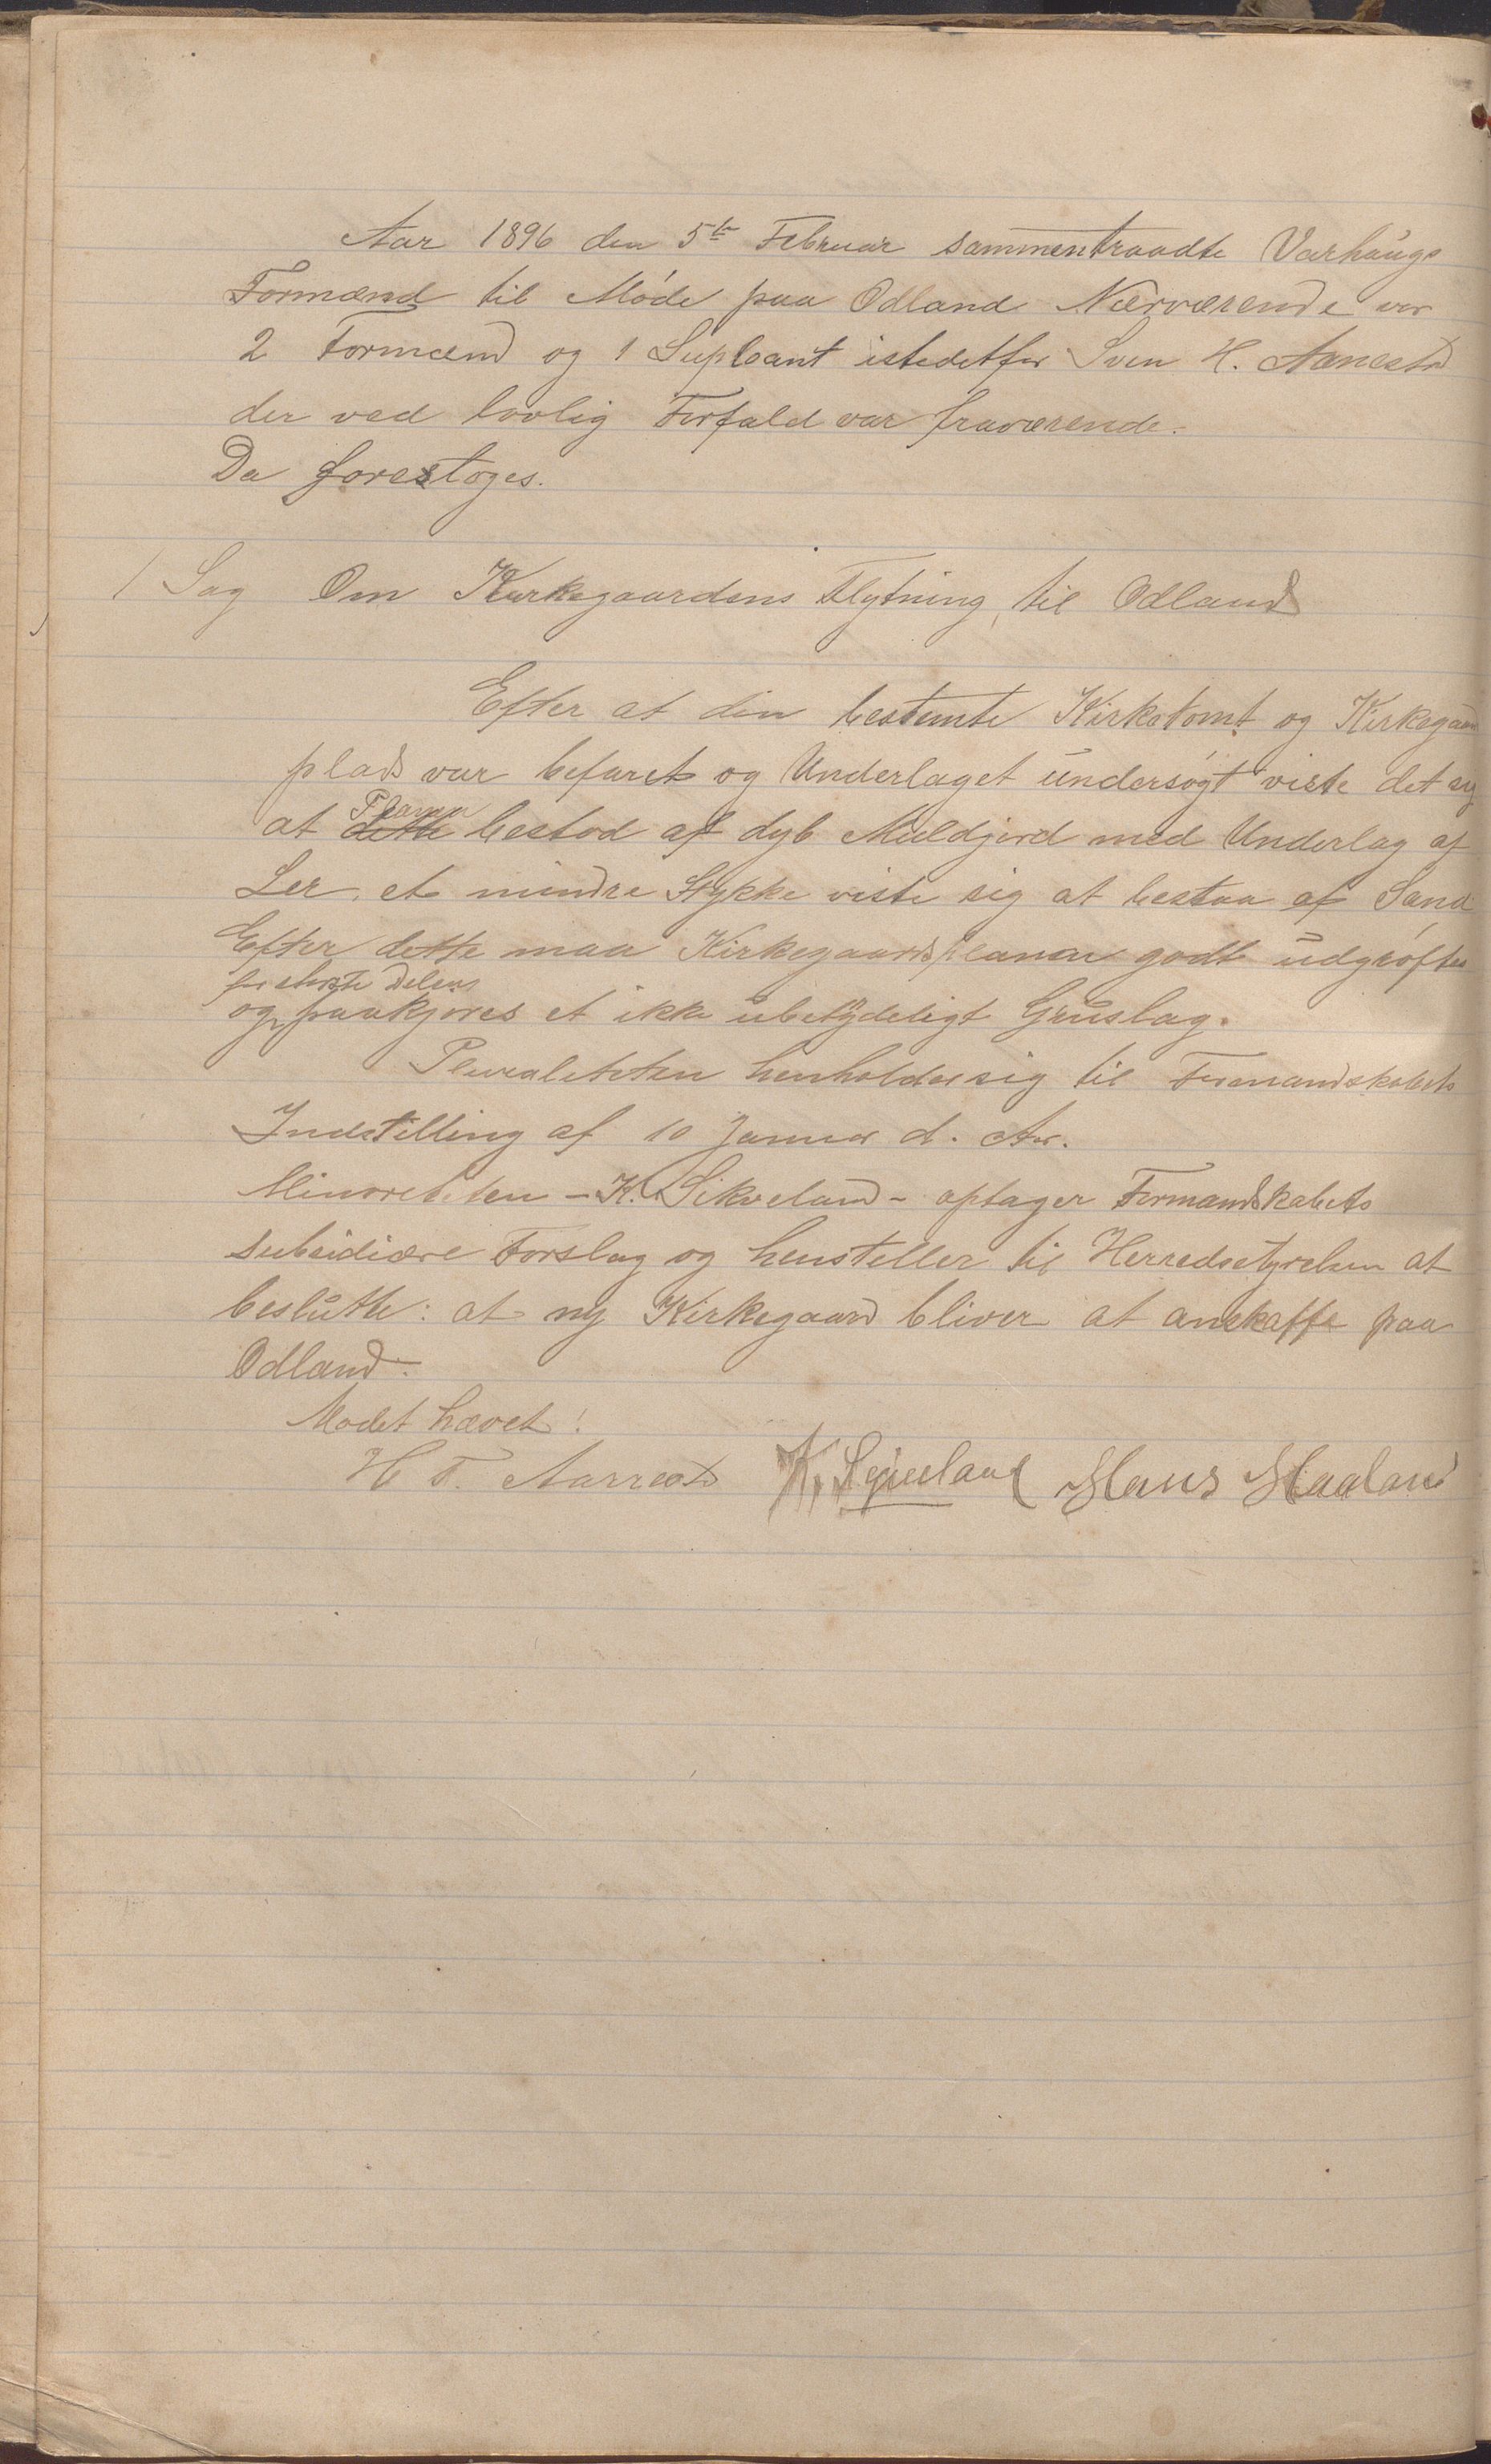 Aar 1896 den 5te Februar sammentraadte Varhaugs
Formænd til Møde paa Odland Nærværende var
2 Formænd og 1 Supleant istedetfor Sven H. Aanestad
der ved lovlig Forfald var fraværende.
Da foretoges.
1 Sag Om Kirkegaardens Flytning, til Odland
Efter at den bestemte Kirketomt og Kirkegaard
plads var befaret og Underlaget undersøgt viste det sig
at Planen bestod af dyb Muldjord med Underlag af
Ler, et mindre Stykke viste sig at bestaa af Sand
Efter dette maa Kirkegaardsplanen godt udgrøftes
for største Delen
og paakjøres et ikke ubetydeligt Gruslag.
Pluraliteten henholder sig til Formandskabets
Indstilling af 10 Januar d. Aar.
Minoriteten - K. Sikveland - optager Formandskabets
subsidiære Forslag og henstiller til Herredsstyrelsen at
beslutte: at ny Kirkegaard bliver at anskaffe paa
Odland.
Mødet hævet!
H T. Aarrestad K. Sigveland Hans Haaland